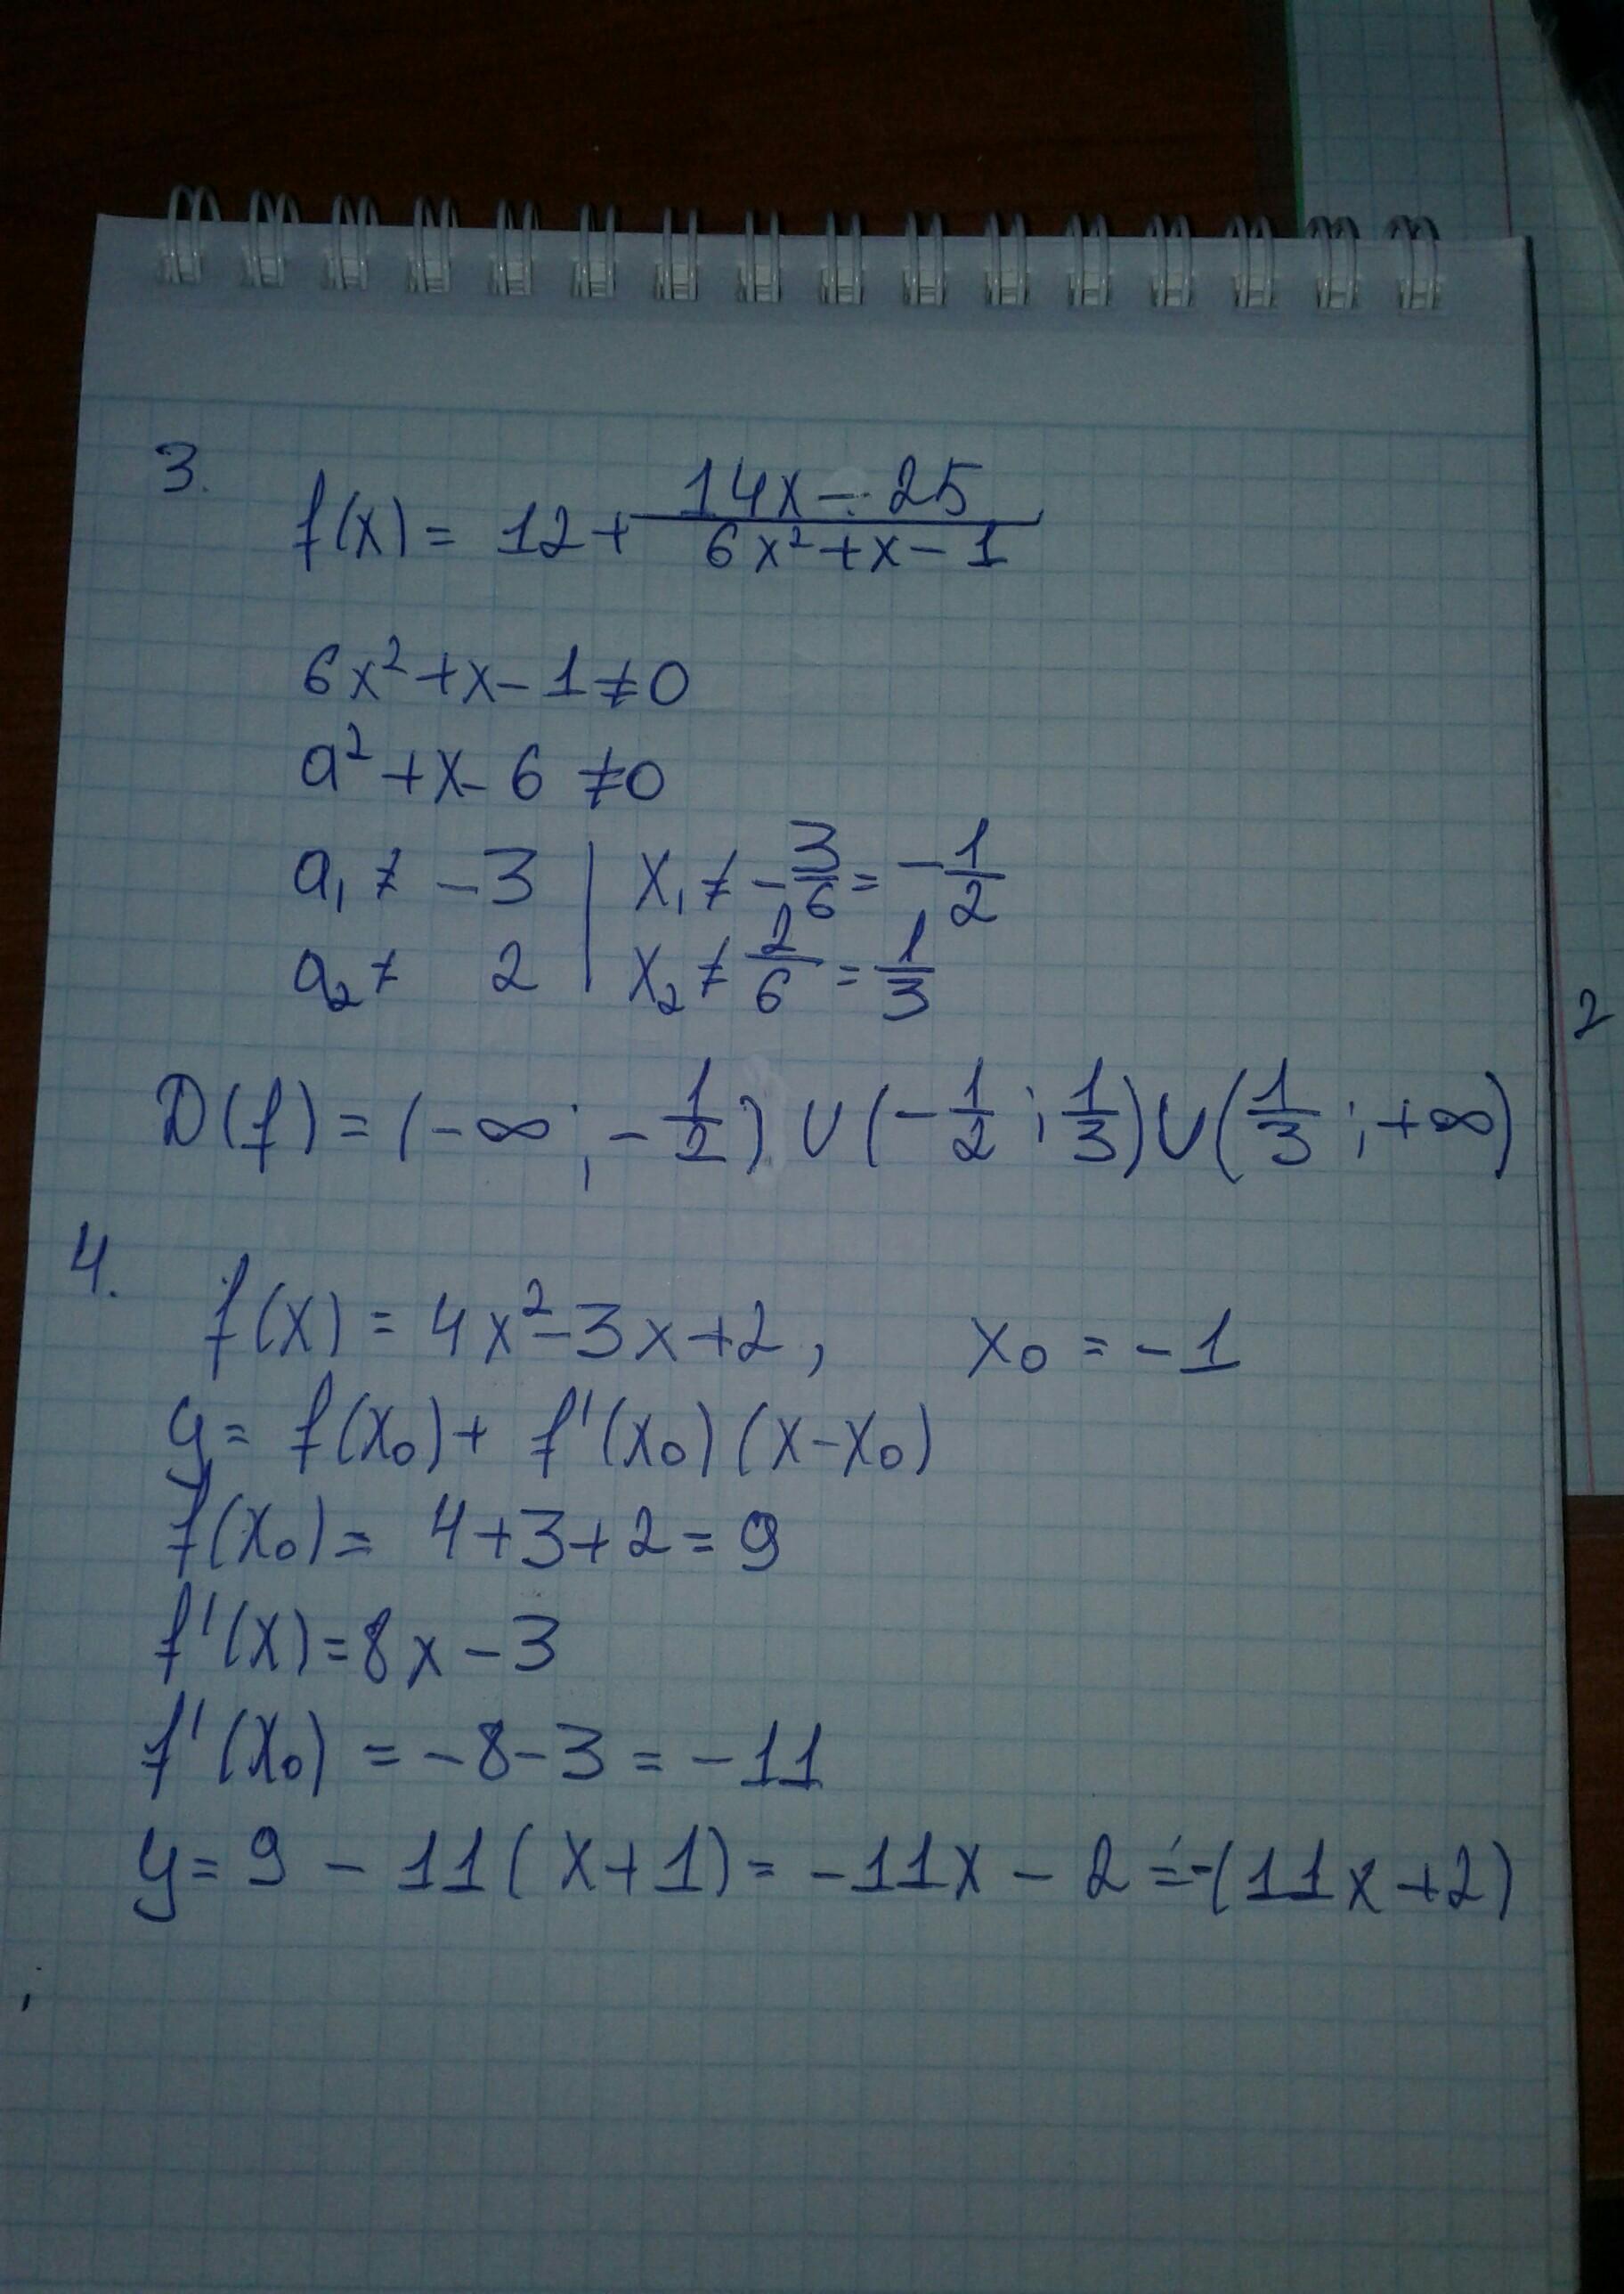 3.
f(x) = 12 + (14x - 25)/(6x² + x - 1)
6x² + x - 1 ≠ 0
a² + x - 6 ≠ 0
a₁ ≠ -3 | x₁ ≠ -3/6 = -1/2
a₂ ≠ 2 | x₂ ≠ 2/6 = 1/3
D(f) = (-∞; -1/2) ∪ (-1/2; 1/3) ∪ (1/3; +∞)
2
4.
f(x) = 4x² - 3x + 2, x₀ = -1
y = f(x₀) + f'(x₀)(x - x₀)
f(x₀) = 4 + 3 + 2 = 9
f'(x) = 8x - 3
f'(x₀) = -8 - 3 = -11
y = 9 - 11(x + 1) = -11x - 2 = -(11x + 2)